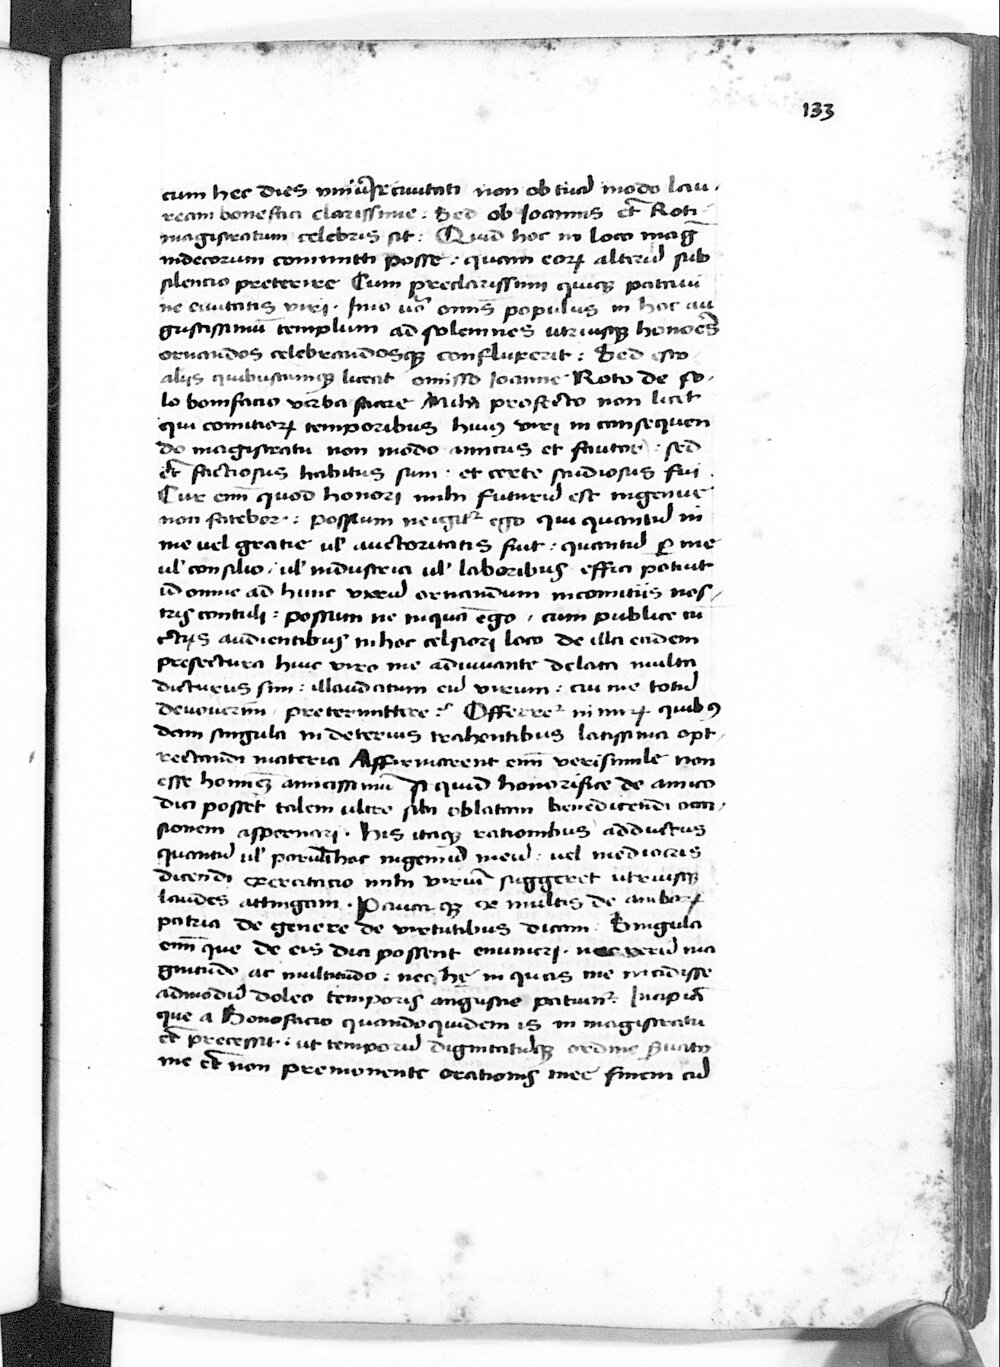 133
cum hec dies univse civitati non ob tuā modo lau-
ream bonefaci clarissime: Sed ob Joannis et̄ Roti
magistratum celebris sit: Quid hoc in loco maḡ
indecorum committi posse: quam eoꝝ alterū sub
silencio preterire Cum preclarissimi quiqꝫ patavi
ne civitatis viri. Imo vō omīs populus in hoc au
gustissimū templum ad solemnes utriusqꝫ honoēs
ornandos celebrandosqꝫ confluxerit: Sed esto
alijs quibuscumqꝫ liceat omisso Joanne Roto de so-
lo bonifacio verba facere Mihi profecto non licet
qui comitioꝝ temporibus huiꝰ viri in consequen
do magistratu non modo amicus et fautor: sed
et̄ factiosus habitus sum: et certe studiosus fui.
Cur enī quod honori mihi futurū est ingenue
non fatebor: possum ne igit̄ ego qui quantū in
me vel gratie ul̄ auctoritatis fuit: quantū ꝑ me
ul̄ consilio: ul̄ industria ul̄ laboribus effici potuit
id omne ad hunc virū ornandum in comitiis nos-
tris contuli: possum ne inquā ego, cum publice cū
ctis audientibus in hoc celsiori loco de illa eadem
prefectura huic viro me adiuvante delata multa
dicturus sim: illaudatum eū virum: cui me totū
devoverim pretermittere: Offerret̄ nimiꝝ quibꝰ
dam singula in deterius trahentibus latissima opt-
rectandi materia Affirmarent enī verisimile non
esse hominē amicissimū si quid honorifice de amico
dici posset talem ultro sibi oblatam benedicendi occa-
sionem aspernari. his itaqꝫ rationibus adductus
quantū ul̄ parvū hoc ingeniū meū: vel mediocris
dicendi exercitatio mihi viriū suggeret utriusqꝫ
laudes attingam. Pauca qꝫ ex multis de amboꝝ
patria de genere de virtutibus dicam: Singula
enī que de eis dici possent enumerari. nec rerū ma
gnitudo ac multitudo: nec hę in quas me incidisse
admodū doleo temporis angustie patiunt̄: Incipiā
que a Bonofacio quandoquidem is in magistratu
et̄ precessit: ut temporū dignitatūqꝫ ordine s̄vato
me et̄ non premonente orationis mee finem cū